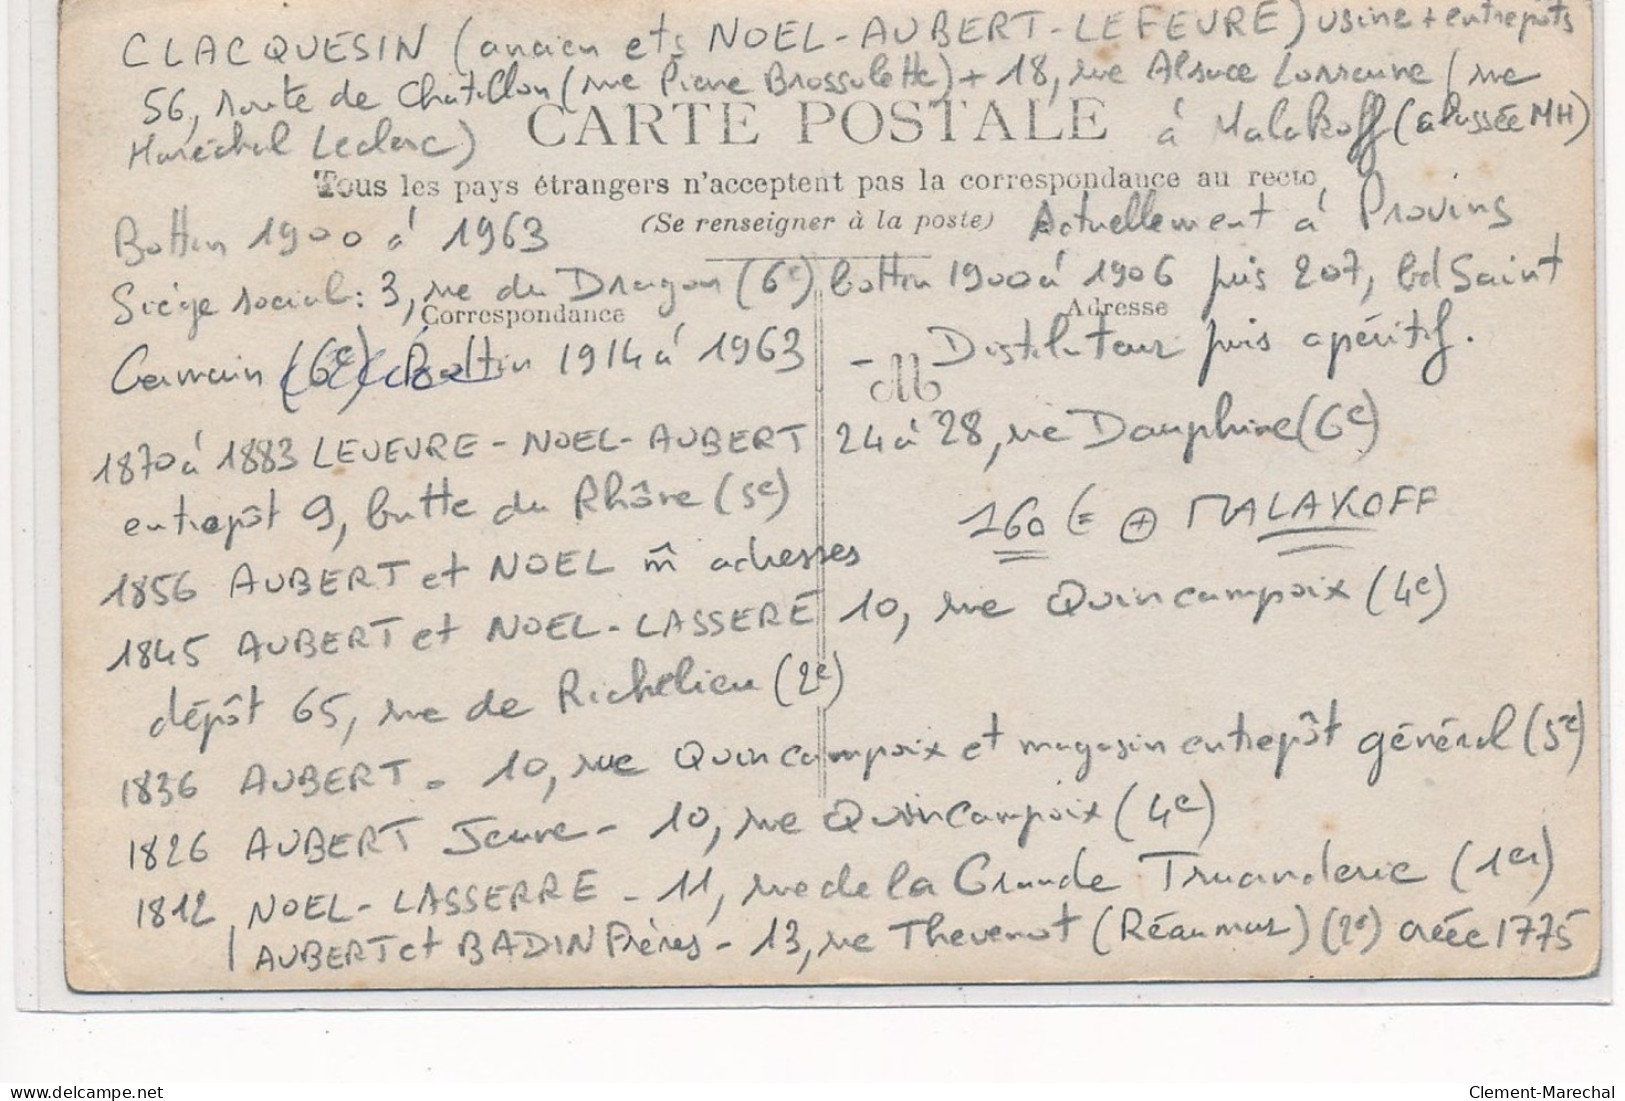 CLACQUESIN (ancien ets NOEL-AUBERT-LEFEVRE) usine + entrepôts
56, route de Chatillon (rue Pierre Brossolette) + 18, rue Alsace Lorraine (rue
Maréchal Leclerc) CARTE POSTALE à Malakoff (classée MH)
Tous les pays étrangers n'acceptent pas la correspondance au recto
(Se renseigner à la poste) Actuellement à Provins
Bottin 1900 à 1963
Siège social : 3, rue du Dragon (6e) bottin 1900 à 1906 puis 207, bd Saint
Correspondance Adresse
Germain (6e) Bottin 1914 à 1963 - Distillateur puis apéritif.
1870 à 1883 LEVEVRE - NOEL - AUBERT 24 à 28, rue Dauphine (6e)
entrepôt 9, butte du Rhône (5e)
160 € + MALAKOFF
1856 AUBERT et NOEL m̂ adresses
1845 AUBERT et NOEL-LASSERE 10, rue Quincampoix (4e)
dépôt 65, rue de Richelieu (2e)
1836 AUBERT - 10, rue Quincampoix et magasin entrepôt général (5e)
1826 AUBERT Jeune - 10, rue Quincampoix (4e)
1812 NOEL-LASSERRE - 11, rue de la Grande Truanderie (1er)
AUBERT et BADIN Frères - 13, rue Thevenot (Réaumur) (2e) créée 1775
Clement-Marechal
www.delcampe.net